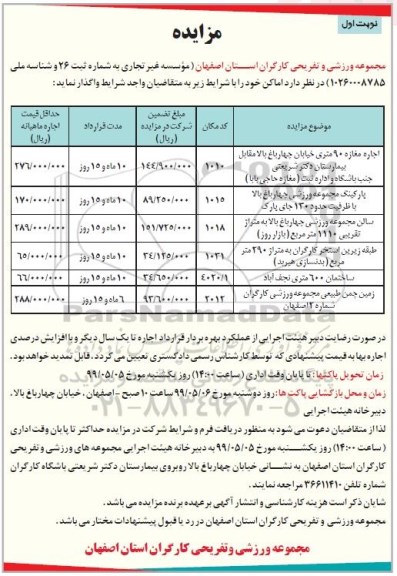 نوبت اول
مزایده
مجموعه ورزشی و تفریحی کارگران استان اصفهان (مؤسسه غیر تجاری به شماره ثبت ۲۶ و شناسه ملی
۱۰۲۶۰۰۰۸۷۸۵) در نظر دارد اماکن خود را با شرایط زیر به متقاضیان واجد شرایط واگذار نماید:
موضوع مزایده کد مکان مبلغ تضمین شرکت در مزایده (ریال) مدت قرارداد حداقل قیمت اجاره ماهیانه (ریال)
اجاره مغازه ۹۰ متری خیابان چهارباغ بالا مقابل
بیمارستان دکتر شریعتی ۱۰۱۰ ۱۴۴/۹۰۰/۰۰۰ ۱۰ ماه و ۱۵ روز ۲۷۶/۰۰۰/۰۰۰
جنب باشگاه و اداره ثبت (مغازه حاجی بابا)
پارکینگ مجموعه ورزشی چهارباغ بالا
با ظرفیت حدود ۱۳۰ جای پارک ۱۰۱۵ ۸۹/۲۵۰/۰۰۰ ۱۰ ماه و ۱۵ روز ۱۷۰/۰۰۰/۰۰۰
سالن مجموعه ورزشی چهارباغ بالا به متراژ
تقریبی ۱۱۹۰ متر مربع (بازار روز) ۱۰۱۸ ۱۵۱/۷۲۵/۰۰۰ ۱۰ ماه و ۱۵ روز ۲۸۹/۰۰۰/۰۰۰
طبقه زیرین استخر کارگران به متراژ ۲۹۰ متر
مربع (بدنسازی هیربد) ۱۰۳۱ ۳۴/۱۲۵/۰۰۰ ۱۰ ماه و ۱۵ روز ۶۵/۰۰۰/۰۰۰
ساختمان ۶۰۰ متری نجف آباد ۴۰۲۰/۱ ۳۴/۶۵۰/۰۰۰ ۱۰ ماه و ۱۵ روز ۶۶/۰۰۰/۰۰۰
زمین چمن طبیعی مجموعه ورزشی کارگران
شماره ۲ اصفهان ۲۰۱۲ ۹۳/۶۰۰/۰۰۰ ۶ ماه و ۱۵ روز ۲۸۸/۰۰۰/۰۰۰
در صورت رضایت دبیر هیئت اجرایی از عملکرد بهره بردار قرارداد اجاره تا یک سال دیگر و با افزایش درصدی
اجاره بها به قیمت پیشنهادی که توسط کارشناس رسمی دادگستری تعیین می گردد. قابل تمدید خواهد بود.
زمان تحویل پاکتها: تا پایان وقت اداری (ساعت ۱۴:۰۰) روز یکشنبه مورخ ۹۹/۰۵/۰۵
زمان و محل بازگشایی پاکت ها: روز دوشنبه مورخ ۹۹/۰۵/۰۶ ساعت ۱۰ صبح - اصفهان، خیابان چهارباغ بالا.
دبیرخانه هیئت اجرایی
لذا از متقاضیان دعوت می شود به منظور دریافت فرم و شرایط شرکت در مزایده حداکثر تا پایان وقت اداری
(ساعت ۱۴:۰۰) روز یکشنبه مورخ ۹۹/۰۵/۰۵ به دبیرخانه هیئت اجرایی مجموعه های ورزشی و تفریحی
کارگران استان اصفهان به نشانی خیابان چهارباغ بالا روبروی بیمارستان دکتر شریعتی باشگاه کارگران
شماره تلفن ۳۶۶۱۱۴۱۰ مراجعه نمایند.
شایان ذکر است هزینه کارشناسی و انتشار آگهی بر عهده برنده مزایده می باشد.
مجموعه ورزشی و تفریحی کارگران استان اصفهان در رد یا قبول پیشنهادات مختار می باشد.
مجموعه ورزشی و تفریحی کارگران استان اصفهان
ParsNamadData
۰۲۱-۸۸۳۴۹۶۷۰-۵